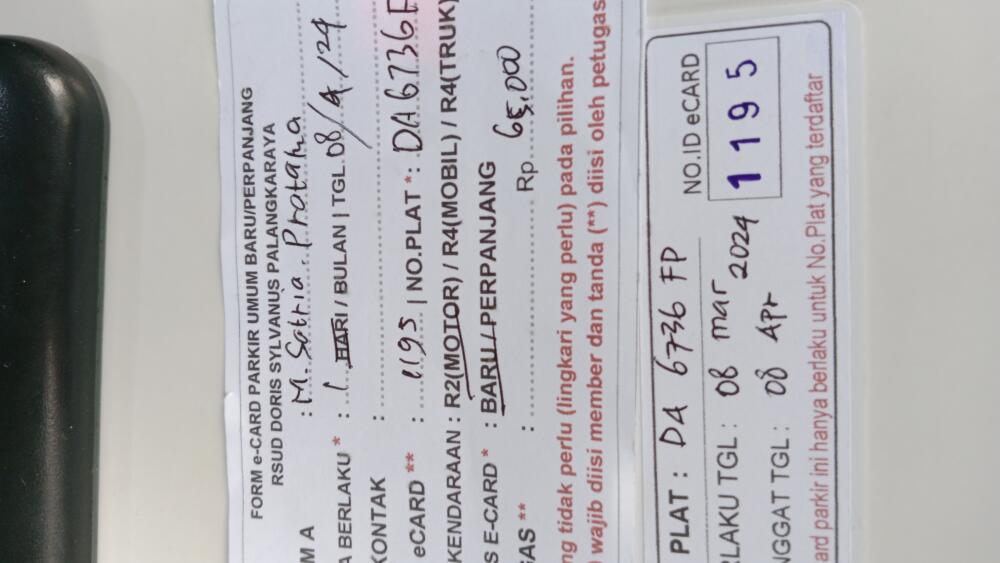 FORM e-CARD PARKIR UMUM BARU/PERPANJANG
RSUD DORIS SYLVANUS PALANGKARAYA
M A : M. Satria Pratama
A BERLAKU * : 1 HARI / BULAN | TGL. 08/4/24
KONTAK :
eCARD ** : 1195 | NO.PLAT *: DA 6736 F
KENDARAAN : R2(MOTOR) / R4(MOBIL) / R4(TRUK)
S E-CARD * : BARU/PERPANJANG
GAS ** : Rp. 65.000
ng tidak perlu (lingkari yang perlu) pada pilihan.
) wajib diisi member dan tanda (**) diisi oleh petugas
PLAT : DA 6736 FP
NO.ID eCARD
1195
RLAKU TGL : 08 mar 2024
NGGAT TGL : 08 Apr
ard parkir ini hanya berlaku untuk No.Plat yang terdaftar